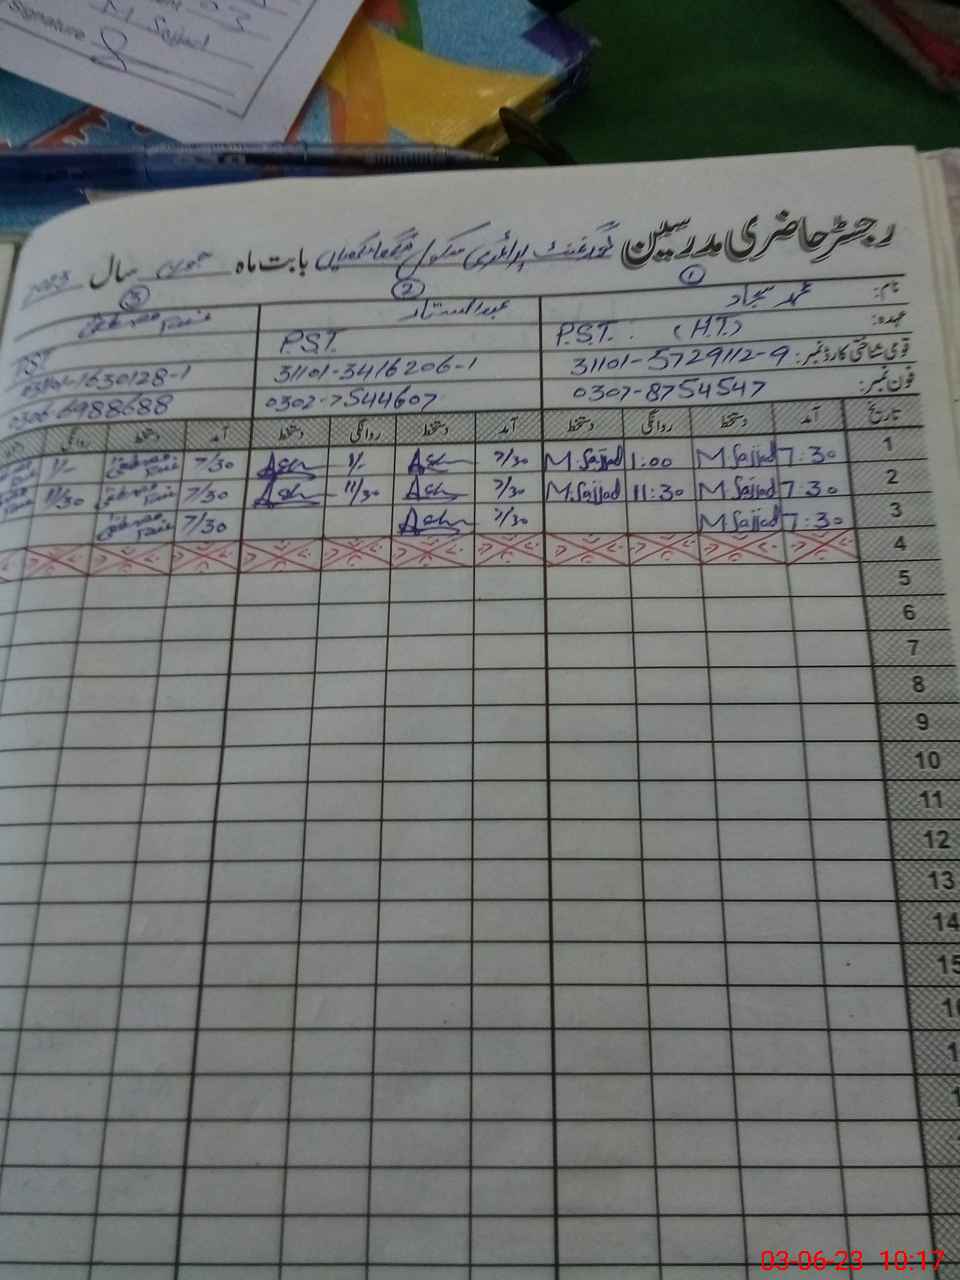 M Sajjad
Signature
رجسٹر حاضری مدرسین گورنمنٹ پرائمری سکول بابت ماہ جون سال 2023
① ② ③
نام: محمد سجاد عبدالستار
عہدہ: P.S.T. (H.T) P.S.T. PST
قومی شناختی کارڈ نمبر: 31101-5729112-9 31101-3416206-1 31101-1630128-1
فون نمبر: 0307-8754547 0302-7544607 0306-6988688
تاریخ آمد دستخط روانگی دستخط آمد دستخط روانگی دستخط آمد دستخط روانگی
1 7:30 M.Sajjad 1:00 M.Sajjad 7/30 1/- 7/30 1/-
2 7:30 M.Sajjad 11:30 M.Sajjad 7/30 11/30 7/30 11/30
3 7:30 M.Sajjad 7/30 7/30
4
5
6
7
8
9
10
11
12
13
14
15
03-06-23 10:17